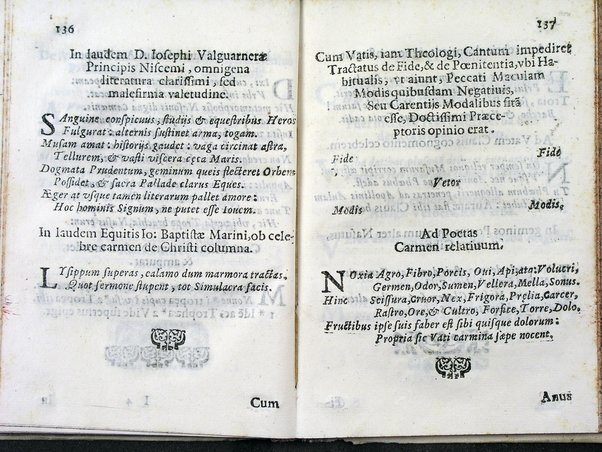 136
In laudem D. Iosephi Valguarneræ
Principis Niscemi, omnigena
literatura clarissimi, sed
malefirma valetudine.
SAnguine conspicuus, studijs & equestribus Heros
Fulgurat: alternis sustinet arma, togam.
Musam amat: historijs gaudet: vaga circinat astra,
Tellurem, & vasti viscera cæca Maris.
Dogmata Prudentum, geminum queis flecteret Orbem
Possidet, & sacra Pallade clarus Eques.
Æger at vsque tamen literarum pallet amore:
Hoc hominis Signum, ne putet esse Iouem.
In laudem Equitis Io: Baptistæ Marini, ob cele-
bre carmen de Christi columna.
LYsippum superas, calamo dum marmora tractas.
Quot sermone stupent, tot Simulacra facis.
Cum
137
Cum Vatis, iam Theologi, Cantum impediret
Tractatus de Fide, & de Pœnitentia, vbi Ha-
bitualis, vt aiunt, Peccati Maculam
Modis quibusdam Negatiuis,
Seu Carentijs Modalibus sitā
esse, Doctissimi Præce-
ptoris opinio erat.
Fide Fide
Vetor
Modis Modis
Ad Poetas
Carmen relatiuum.
NOxia Agro, Fibro, Porcis, Oui, Api, ata: Volucri,
Germen, Odor, Sumen, Vellera, Mella, Sonus.
Hinc Scissura, Cruor, Nex, Frigora, Prelia, Carcer,
Rastro, Ore, & Cultro, Forfice, Torre, Dolo,
Fructibus ipse suis faber est sibi quisque dolorum:
Propria sic Vati carmina sæpe nocent.
Anus